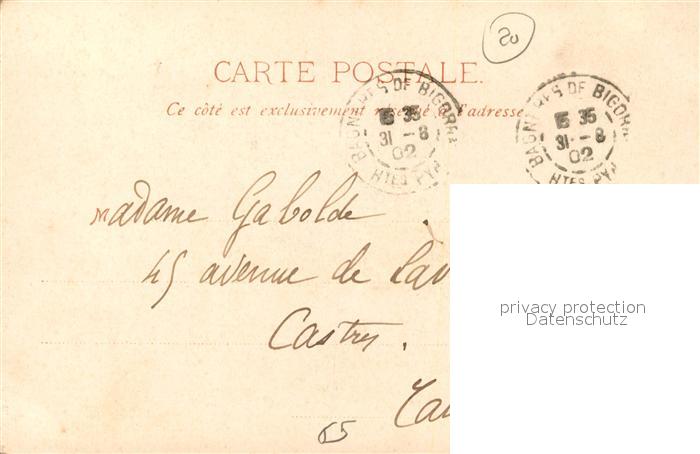 80
CARTE POSTALE.
Ce côté est exclusivement réservé à l'adresse
BAGNÈRES DE BIGORRE
15 35
31 - 8
02
HTES PYR
BAGNÈRES DE BIGORR
15 35
31 - 8
02
HTES PYR
Madame Gabolde.
45 avenue de Lav
Castres.
Ta
65
privacy protection
Datenschutz